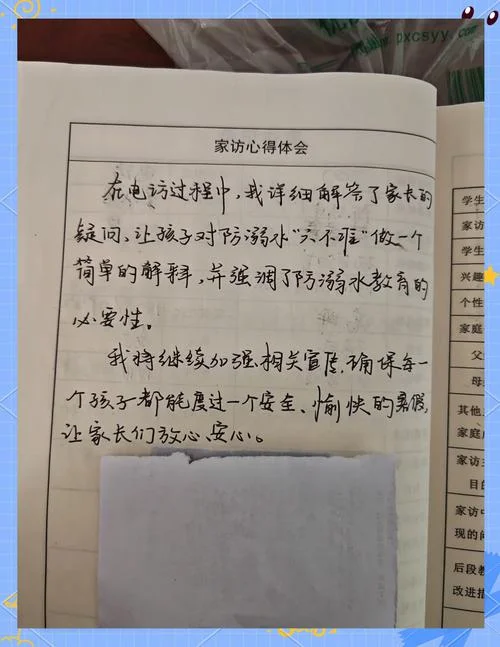 pxcsyy.com
家访心得体会
在电访过程中,我详细解答了家长的
疑问,让孩子对防溺水“六不准”做一个
简单的解释,并强调了防溺水教育的
必要性。
我将继续加强相关宣传,确保每一
个孩子都能度过一个安全、愉快的暑假,
让家长们放心、安心。
学生
家访
学生
兴趣
个性
家庭
父
母
其他
家庭
家访
目的
家访中
现的问
后段教
改进措